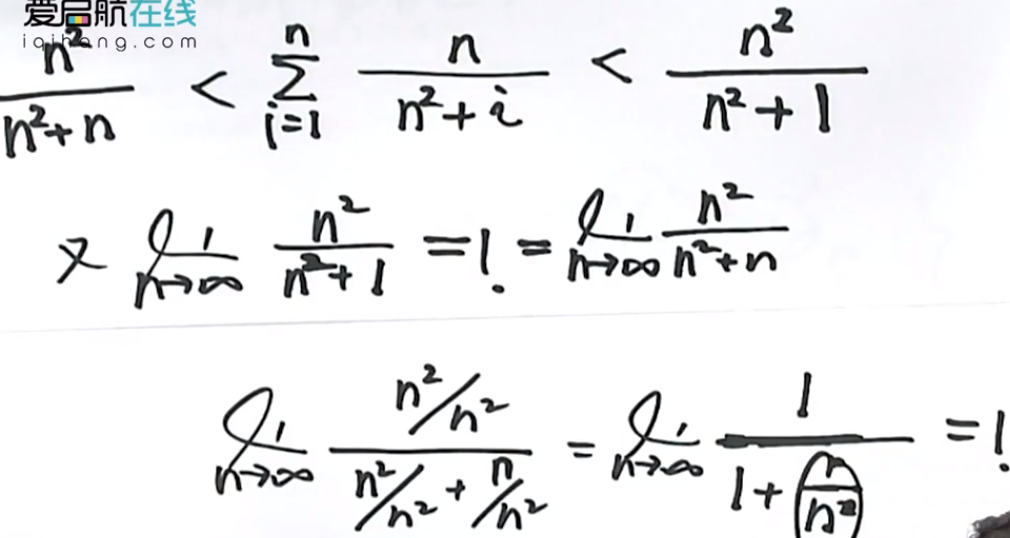 爱启航在线
iqihang.com
n²/(n²+n) < Σ_{i=1}^{n} n/(n²+i) < n²/(n²+1)
又 lim_{n→∞} n²/(n²+1) = 1. = lim_{n→∞} n²/(n²+n)
lim_{n→∞} (n²/n²)/(n²/n² + n/n²) = lim_{n→∞} 1/(1+n/n²) = 1.